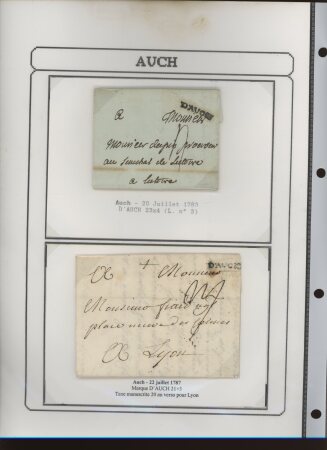 AUCH
D'AUCH
a Monsieur
Monsieur
au senechal de Lectoure
a Lectoure
Auch - 20 Juillet 1783
D'AUCH 23x4 (L. n° 2)
D'AUCH
A Monsieur
Monsieur
place neuve des Carmes
A Lyon
Auch - 22 juillet 1787
Marque D'AUCH 21×3
Taxe manuscrite 20 au verso pour Lyon